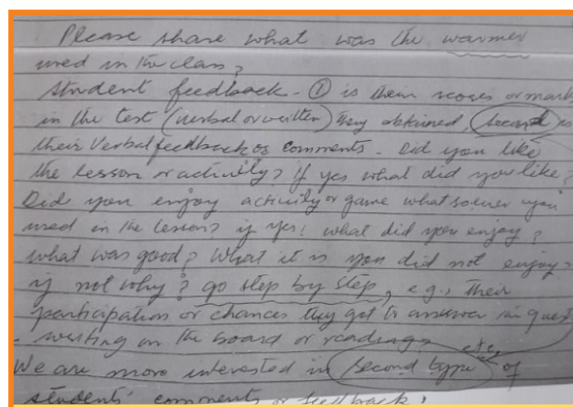 Please share what was the warmer
used in the class?
student feedback - ① is their scores or marks
in the test (verbal or written) they obtained, second is
their verbal feedback or comments. Did you like
the lesson or activity? if yes what did you like?
Did you enjoy activity or game whatsoever you
used in the lesson? if yes! what did you enjoy?
what was good? What it is you did not enjoy?
if not why? go step by step, e.g., Their
participation or chances they got to answer in quest
- writing on the board or readings etc
We are more interested in second type of
students' comments or feedback!